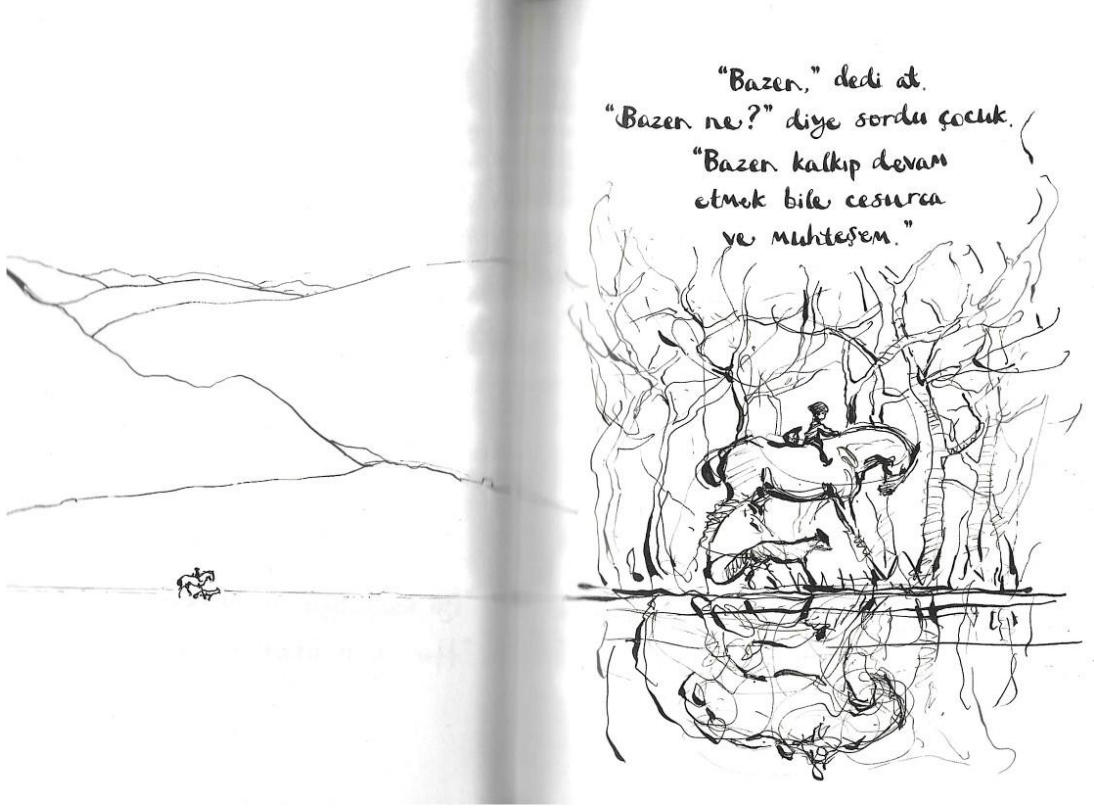 "Bazen," dedi at.
"Bazen ne?" diye sordu çocuk.
"Bazen kalkıp devam
etmek bile cesurca
ve muhteşem."